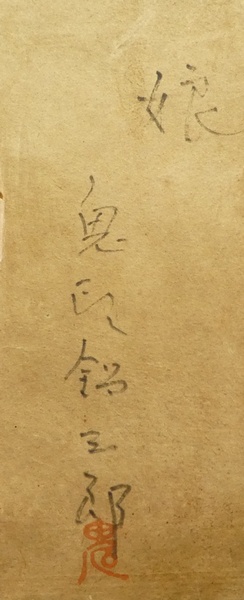 娘
鬼頭鍋三郎